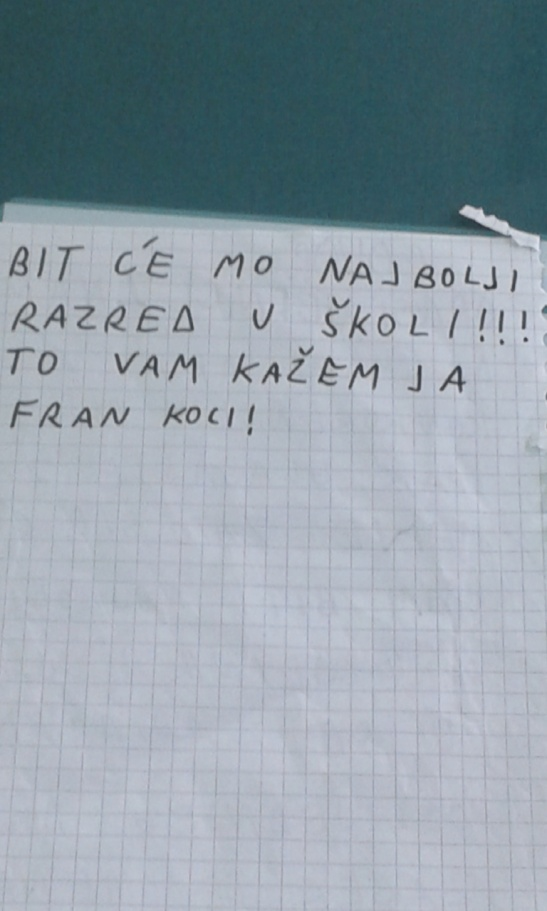 BIT ĆE MO NAJBOLJI
RAZRED U ŠKOLI!!!
TO VAM KAŽEM JA
FRAN KOCI!